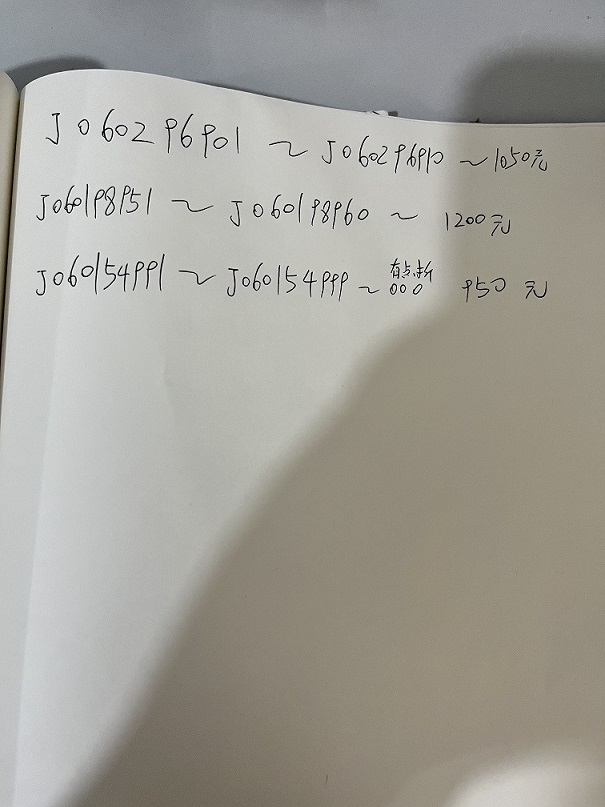 J060296901 ~ J060296910 ~ 1050元
J060198951 ~ J060198960 ~ 1200元
J060154991 ~ J060154999 ~ 有点新 000 950元